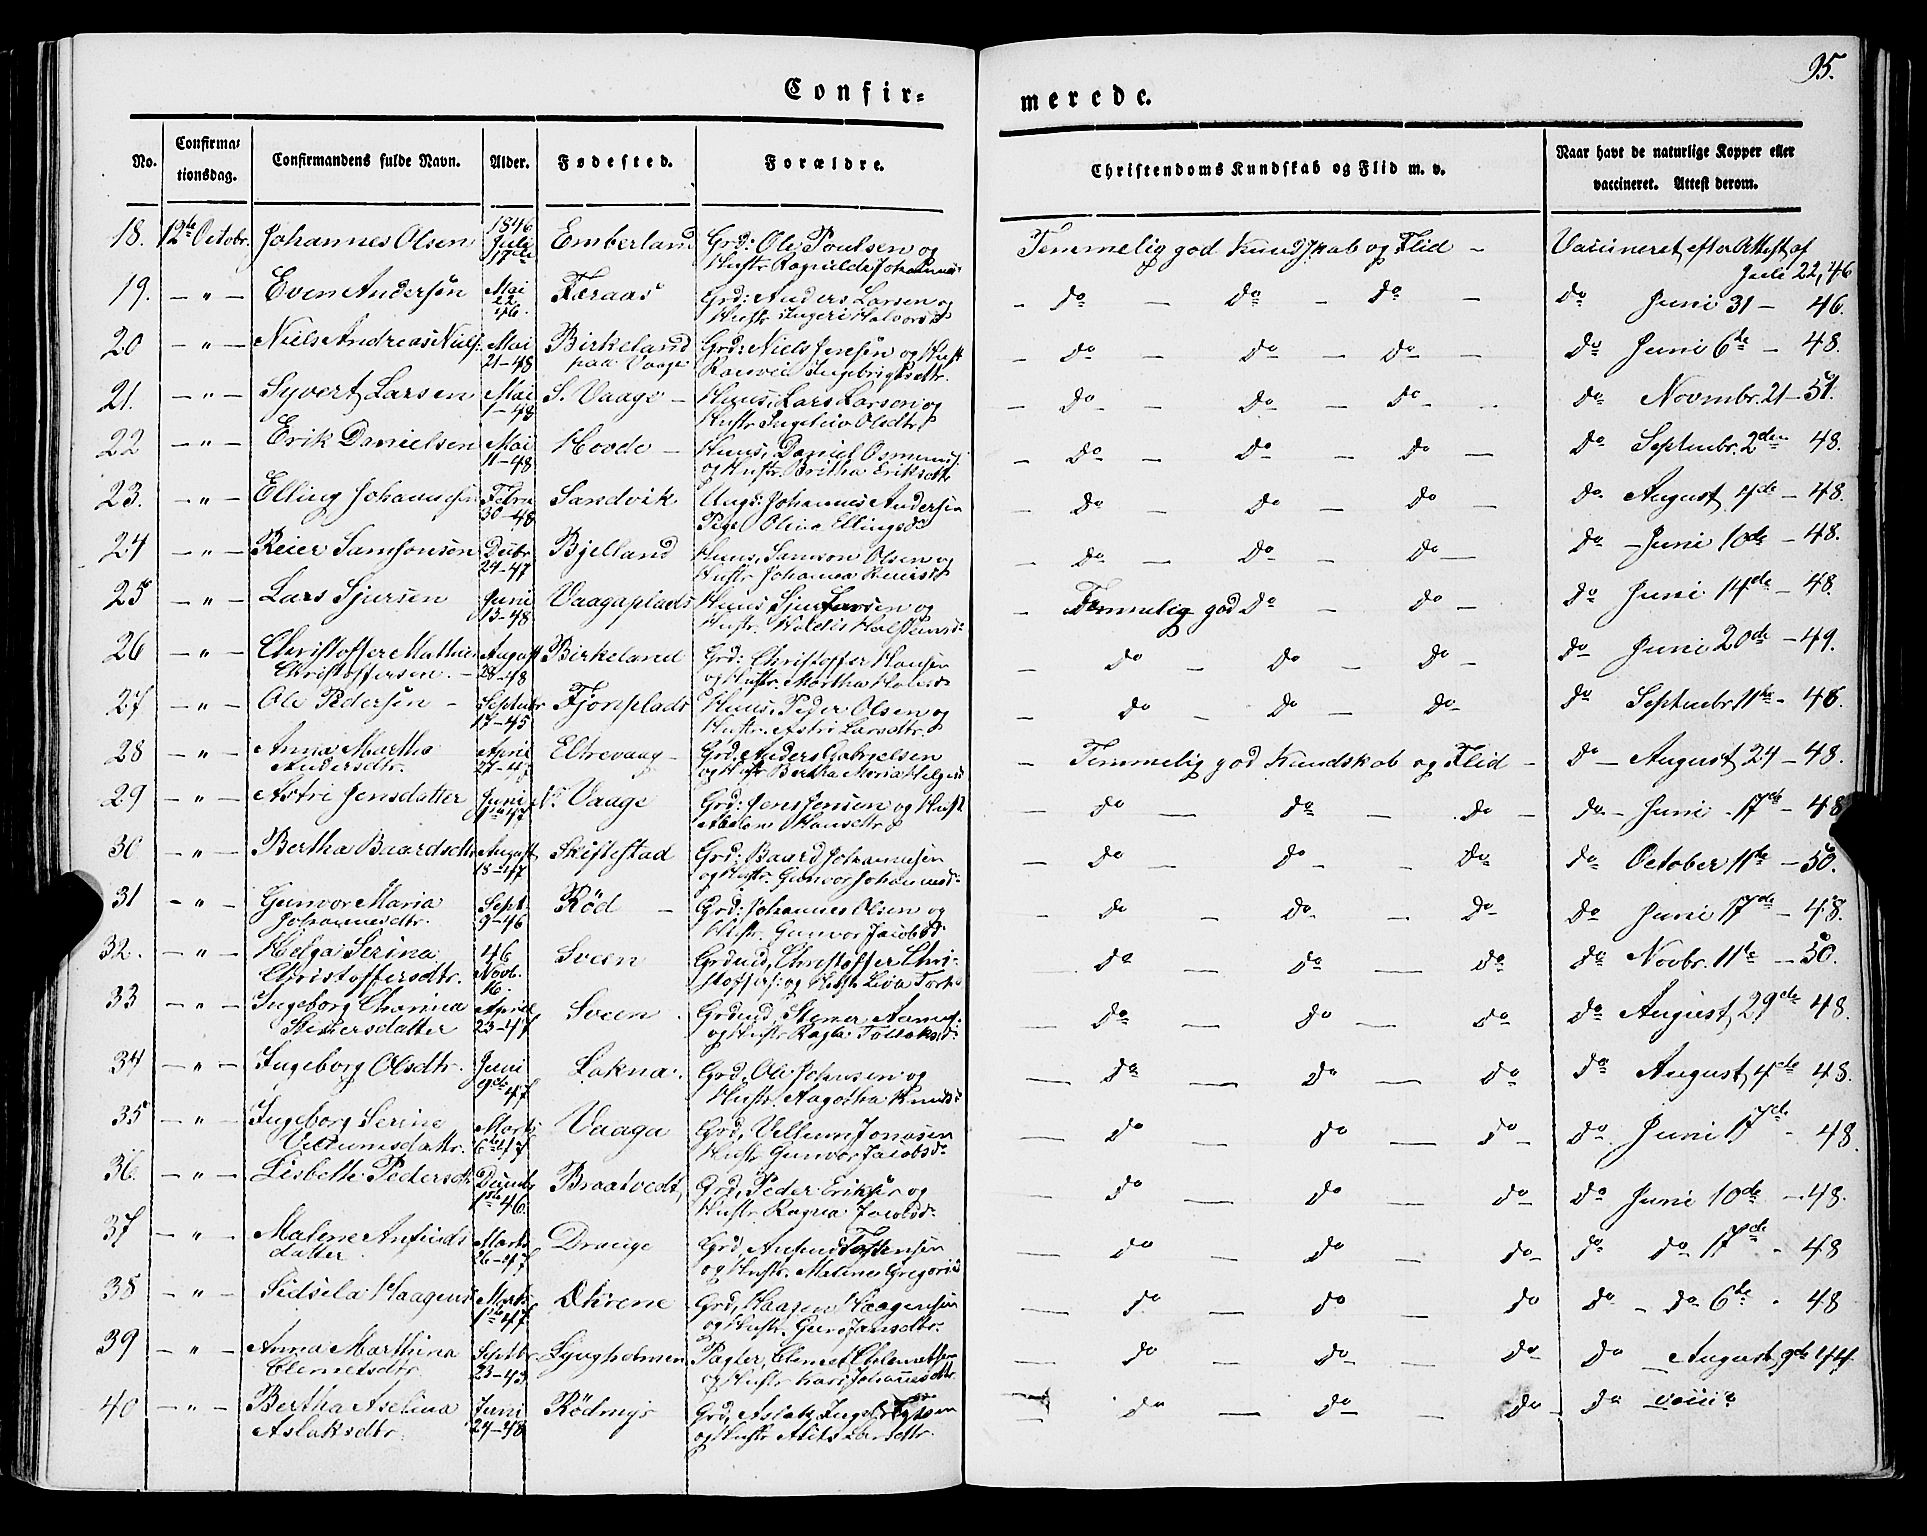 95.
Confir=
merede.
No.
Confirma=
tionsdag.
Confirmandens fulde Navn.
Alder.
Fødested.
Forældre.
Christendoms Kundskab og Flid m. v.
Naar havt de naturlige Kopper eller
vaccineret. Attest derom.
18. 12te Octobr. Johannes Olsen 1846 Juli 17de Emberland Grd: Ole Poulsen og Temmelig god Kundskab og Flid - Vaccineret efter Attest af
Hustr. Johannes Juli 22, 46
19. — " — Even Andersen Mai 22 46. Færaas Grd: Anders Larsen og — do — do — do — do Juni 31 — 46.
Hustr Ingeri Halvorsd
20 — " — Niels Andreas Niels: Mai 21-48 Birkeland Grd: Niels Jensen og Hustr — do — do — do — do Juni 6te — 48.
paa Vaage Ingebrigtsdtr.
21. — " — Syvert Larsen Mai 1-48 S. Vaage — Huus. Lars Larsen og — do — do — do — do Novmbr. 21 — 51.
Hustr Olsdtr
22 — " — Erik Danielsen Mai 11-48 Hovde — Huus. Daniel Osmunds: — do — do — do — do Septmbr. 2den 48.
og Hustr. Britha Eriksdtr
23. — " — Elling Johannesen Febru 30-48 Sandvik Ungk: Johannes Andersen — do do do — do August 4de — 48.
Pige Olina Ellingsd
24 — " — Reier Samsonsen Decbr 24-47 Bjelland Huus. Samson Olsen og — do — do — do — do — Juni 10de — 48.
Hustr Johanna Reiersd
25 — " — Lars Sjursen Juni 13-48 Vaagaplads Huus Sjur Larsen og — Temmelig god do — do — do Juni 14de — 48.
Hustr.
26 — " — Christoffer Mathias August 28-48 Birkeland Grd: Christoffer Hansen — do — do — do — do Juni 20de — 49.
Christoffersen. — og Hustr. Martha
27 — " — Ole Pedersen — Septmbr 17-45 Fjonplads Huus. Peder Olsen og — do — do — do — do Septmbr 11te — 46.
Hustr. Astri Larsdtr.
28 — " — Anna Martha April 27-47 Eltrevaag — Grd: Anders Gabrielsen — Temmelig god Kundskab og Flid — do — August 24 — 48.
Andersdtr. og Hustr Bertha Maria Helgesd
29 — " — Astri Jensdatter Juni 11te 47 N. Vaage Grd: Jens Jensen og Hustr — do — do — do — do — Juni 17de — 48
Hansdtr
30 — " — Bertha Baardsdtr August 18-47 Skiftestad Grd: Baard Johannesen — do — do — do do October 11te — 50.
og Hustr. Gunvor Johannesd:
31 — " — Gunvor Maria Sept. 9-46 Rød — Grd: Johannes Olsen og — do — do — do do Juni 17de — 48.
Johannesdtr. Hustr. Gunvor Jacobsd
32. — " — Helga Serina 46 Novb. 16. Sveen Grdmd, Christoffer Chri- — do — do — do do Novbr. 11te — 50.
Christoffersdtr. stoffers: og Hustr Liva
33 — " — Ingeborg April 23-47 Sveen. Grdmd, Stener — do — do — do do August 29de 48.
Stenersdatter og Hustr
34 — " — Ingeborg Olsdtr. Juni 9de 47 Lokna. Grd, Ole Johnsen og — do — do — do do August 4de 48.
Hustr. Aagotha Knudsd:
35 — " — Ingeborg Serine Marts 6te 47 Vaaga Grd, Villum Jonasen — do — do — do — do Juni 17de — 48.
Villumsdattr. Hustr Gunvor Jacobsd:
36. — " — Lisbethe Pedersdtr Decmb 1ste 46 Braatvedt Grd, Peder Eriksen og — do — do do do Juni 10de — 48.
Hustr. Ragna Jacobsd:
37 — " — Malene Anfinds Marts 26-47 Drange Grd, Anfind Torstensen — do — do — do — do do 17de — 48
datter og Hustr. Malene Gregorisd
38 — " — Sidsela Haagens Marts 1ste 47 Økrene Grd, Haagen Haagensen — do — do — do do — do 6te — 48
og Hustr. Guro Jansdtr.
39 — " — Anna Marthina Septbr 23-43 Lyngholmen Pagter, Clemet Clemetsen — do — do — do do August 9de 44.
Clemetsdtr. og Hustr Kari Johannesdtr
40 — " — Bertha Aselina Juni 24-48 Rødmyr Grd, Aslak Ingebrigtsen — do — do — do — do vacc:
Aslaksdtr. og Hustr Larsdtr.